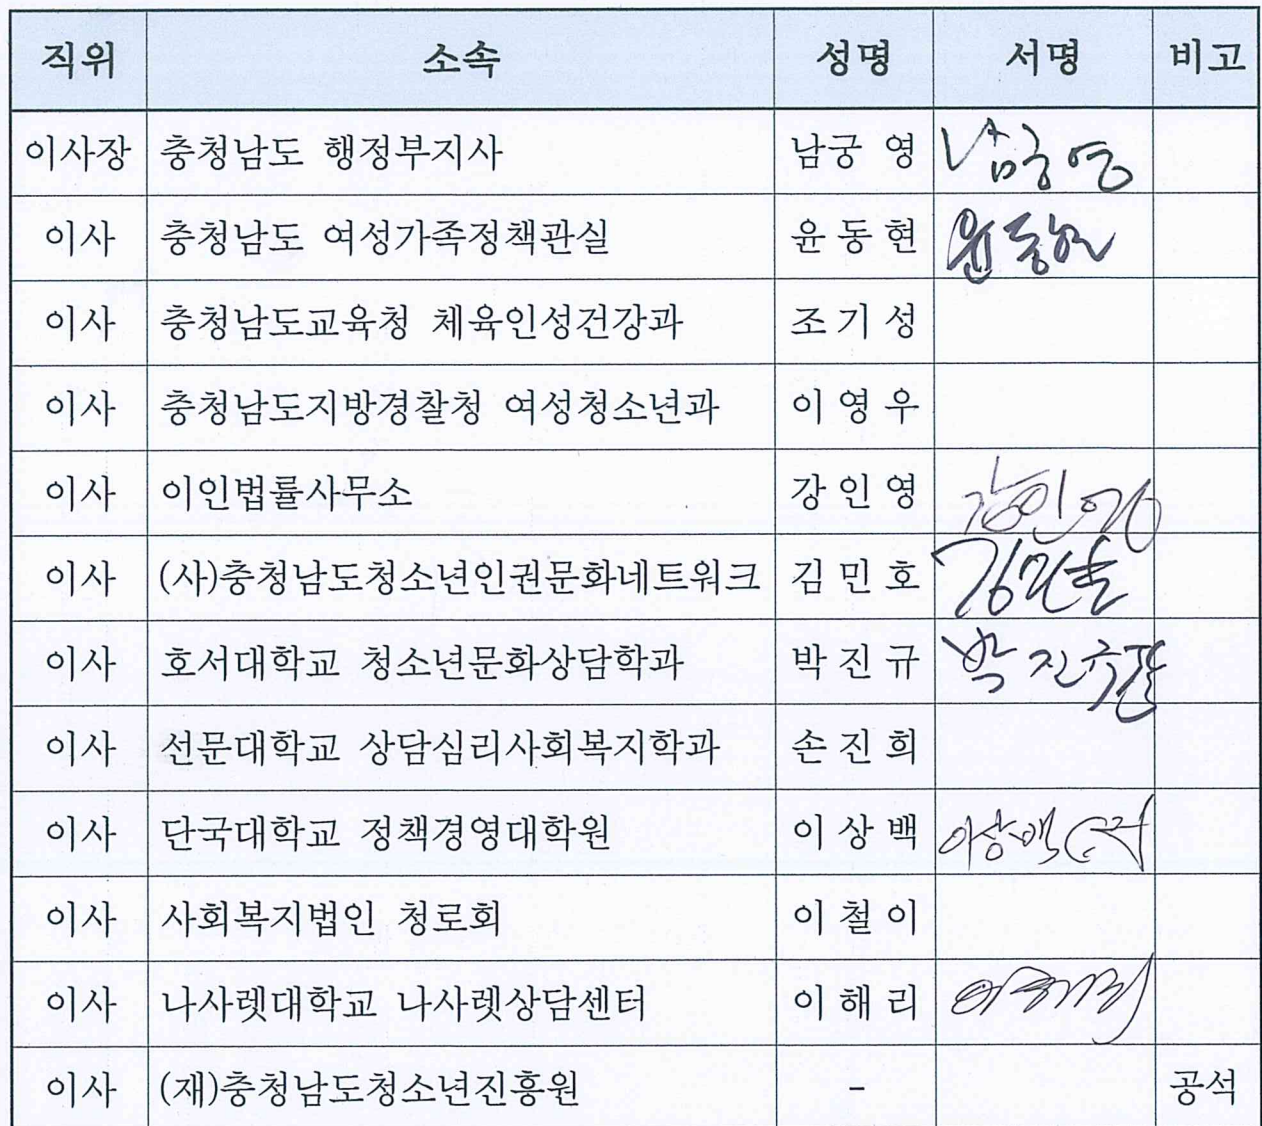 직위 소속 성명 서명 비고
이사장 충청남도 행정부지사 남궁 영 남궁영
이사 충청남도 여성가족정책관실 윤동현 윤동현
이사 충청남도교육청 체육인성건강과 조기성
이사 충청남도지방경찰청 여성청소년과 이영우
이사 이인법률사무소 강인영 강인영
이사 (사)충청남도청소년인권문화네트워크 김민호
이사 호서대학교 청소년문화상담학과 박진규 박진규
이사 선문대학교 상담심리사회복지학과 손진희
이사 단국대학교 정책경영대학원 이상백 이상백
이사 사회복지법인 청로회 이철이
이사 나사렛대학교 나사렛상담센터 이해리 이해리
이사 (재)충청남도청소년진흥원 - 공석